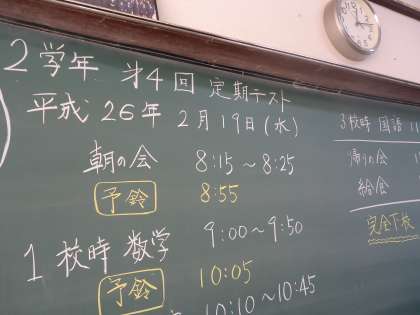 2学年 第4回 定期テスト
平成 26年 2月19日(水)
朝の会 8:15～8:25
予鈴 8:55
1校時 数学 9:00～9:50
予鈴 10:05
10:10～10:45
3校時 国語 11
帰りの会
給会
完全下校